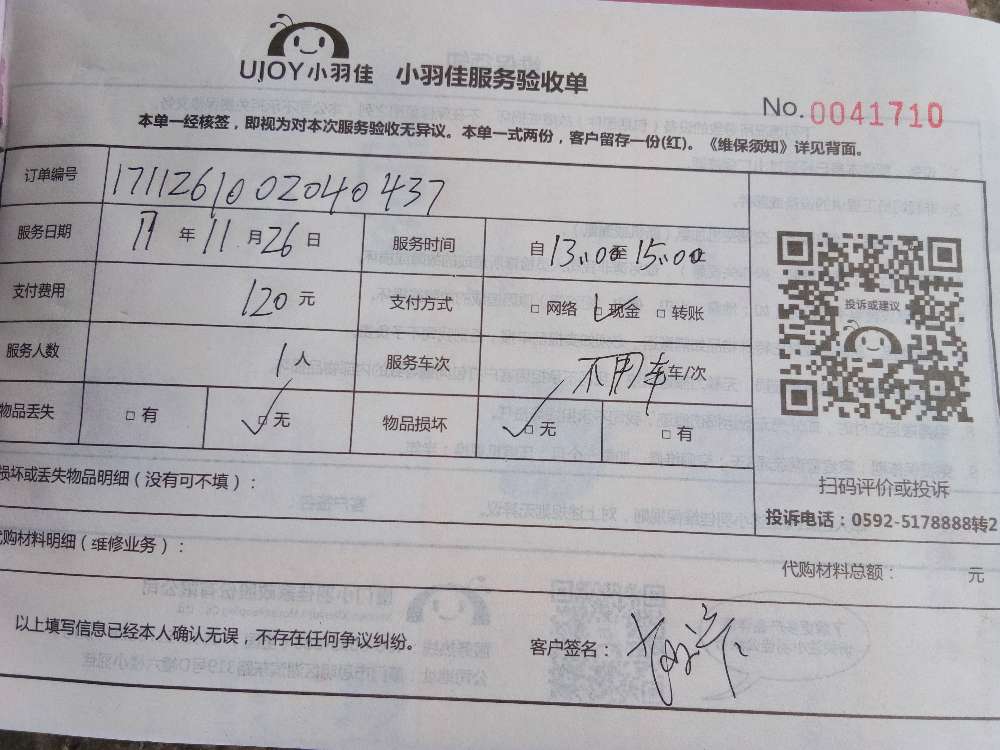 UJOY小羽佳 小羽佳服务验收单
No. 0041710
本单一经核签，即视为对本次服务验收无异议。本单一式两份，客户留存一份(红)。《维保须知》详见背面。
订单编号 1711261002040437
服务日期 17年11月26日 服务时间 自13:00至15:00止
支付费用 120元 支付方式 □网络 ☑现金 □转账
服务人数 1人 服务车次 不用车车/次
物品丢失 □有 ☑无 物品损坏 ☑无 □有
投诉或建议
扫码评价或投诉
投诉电话：0592-5178888转2
损坏或丢失物品明细（没有可不填）：
代购材料明细（维修业务）：
代购材料总额： 元
以上填写信息已经本人确认无误，不存在任何争议纠纷。 客户签名：